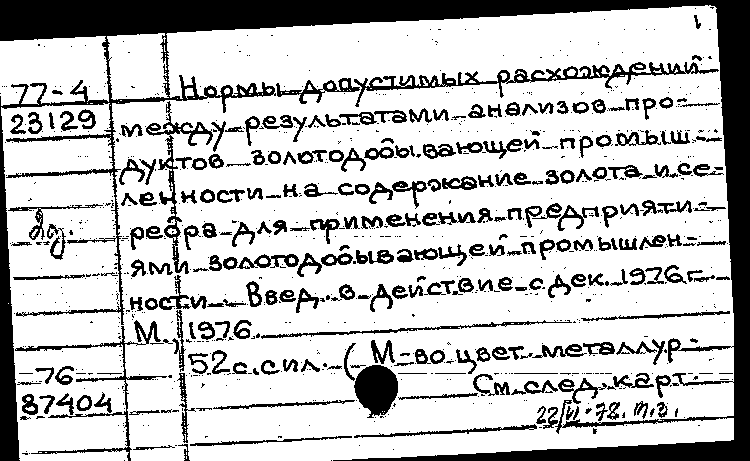 1
77-4 Нормы допустимых расхождений
23129 между результатами анализов про-
дуктов золотодобывающей промыш-
ленности на содержание золота и се-
2д. ребра для применения предприяти-
ями золотодобывающей промышлен-
ности. Введ. в действие с дек. 1976 г.
М., 1976.
52 с. с ил. (М-во цвет. металлур-
76 См. след. карт.
87404
22/VI-78. т.з.